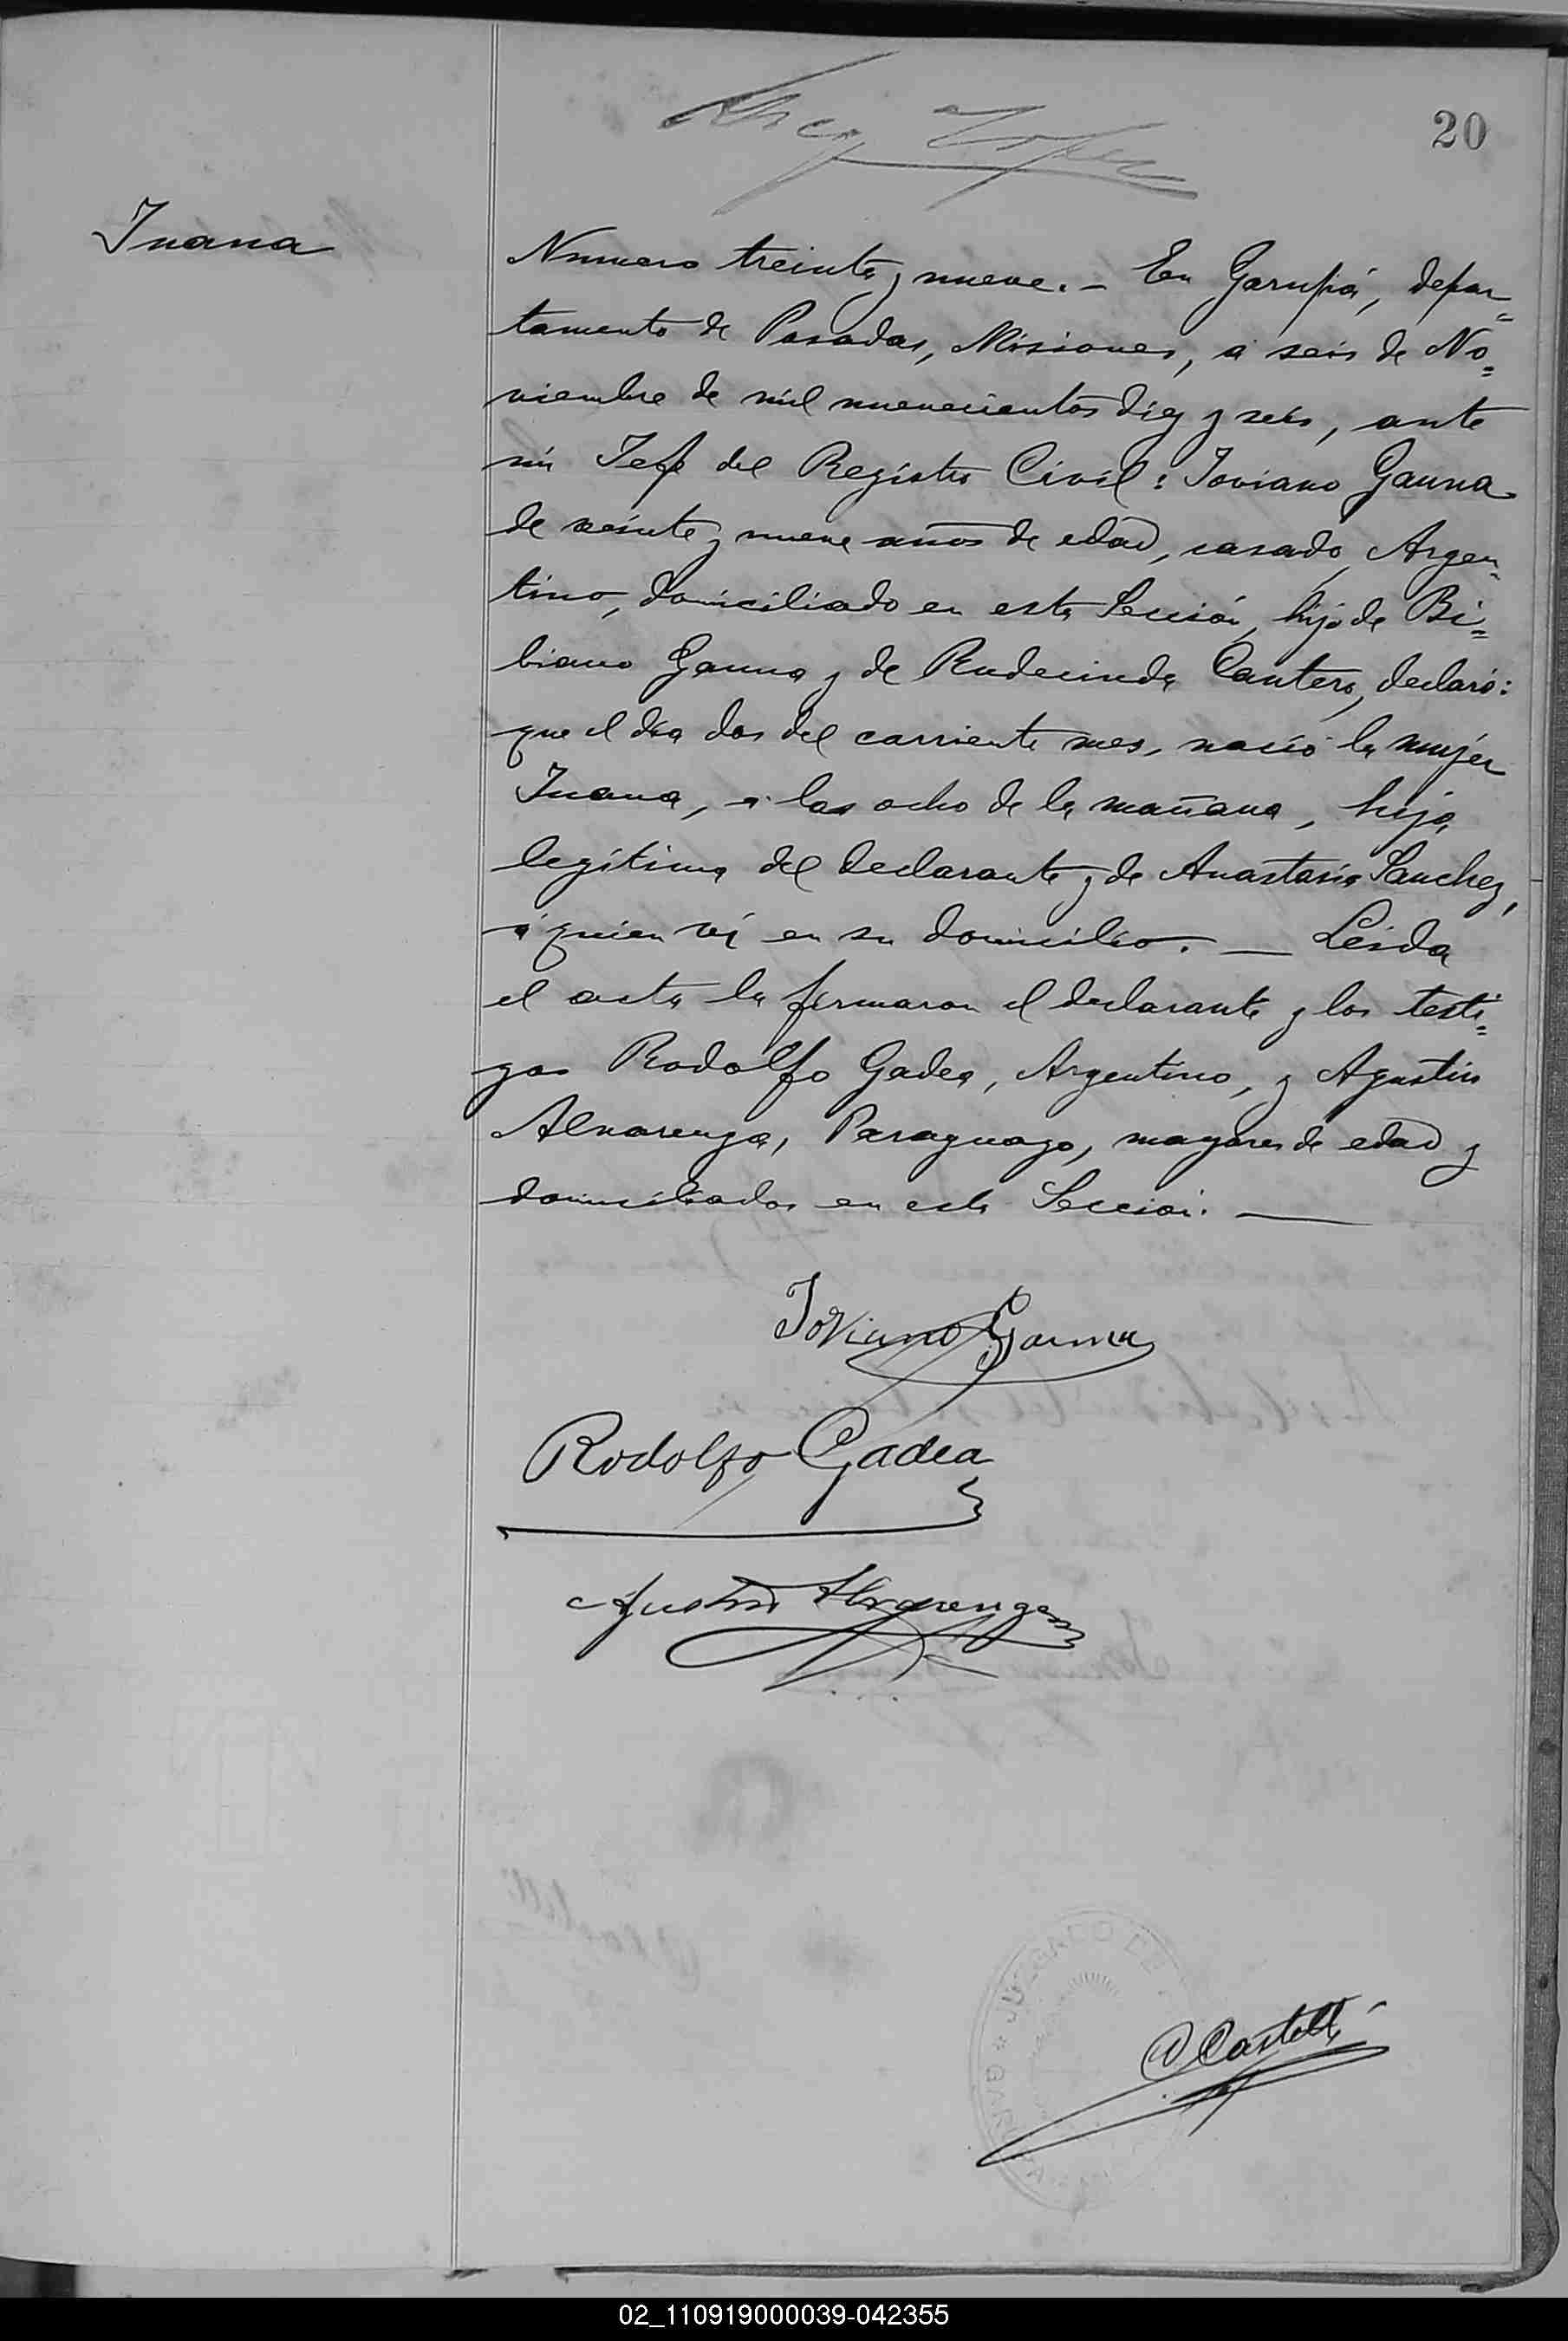 20
Juana
Numero treinta y nueve. - En Garupá, depar=
tamento de Posadas, Misiones, a seis de No=
viembre de mil novecientos diez y seis, ante
mi Jefe del Registro Civil: Joviano Gauna
de veinte y nueve años de edad, casado, Argen=
tino, domiciliado en esta Sección, hijo de Bi=
biano Gauna y de Rudecinda Cantero, declaró:
que el dia dos del corriente mes, nació la mujer
Juana, a las ocho de la mañana, hija
legítima del declarante y de Anastasia Sanchez,
á quien ví en su domicilio. — Leida
el acta la firmaron el declarante y los testi=
gos Rodolfo Gadea, Argentino, y Agustin
Alvarenga, Paraguayo, mayores de edad y
domiciliados en esta Sección. —
Joviano Gauna
Rodolfo Gadea
Agustin Alvarenga
JUZGADO DE
Castelli
02_110919000039-042355